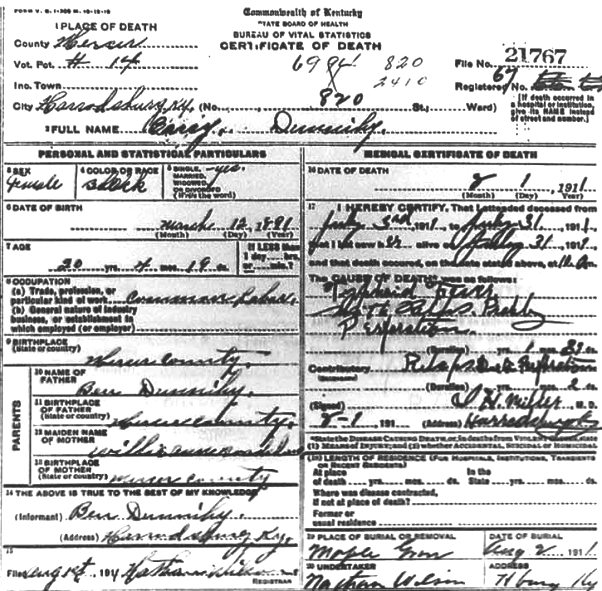 FORM V. S. 1-
Commonwealth of Kentucky
STATE BOARD OF HEALTH
BUREAU OF VITAL STATISTICS
CERTIFICATE OF DEATH
1 PLACE OF DEATH
County Mercer
Vot. Pct. # 14
Inc. Town
City Harrodsburg Ky. (No. 820 St.; Ward)
69 820
2410
File No. 21767
Registered No. 67
[If death occurred in
a hospital or institution,
give its NAME instead
of street and number.]
2 FULL NAME
PERSONAL AND STATISTICAL PARTICULARS
3 SEX female
4 COLOR OR RACE Black
5 SINGLE, MARRIED, WIDOWED, OR DIVORCED (Write the word)
6 DATE OF BIRTH
March 12, 1891
(Month) (Day) (Year)
7 AGE
20 yrs. 4 mos. 19 ds.
If LESS than
1 day, hrs.
or min.?
8 OCCUPATION
(a) Trade, profession, or
particular kind of work Common Labor
(b) General nature of industry
business, or establishment in
which employed (or employer)
9 BIRTHPLACE
(State or country) Mercer County
PARENTS
10 NAME OF FATHER Ben
11 BIRTHPLACE OF FATHER (State or country) Mercer County
12 MAIDEN NAME OF MOTHER
13 BIRTHPLACE OF MOTHER (State or country) Mercer County
14 THE ABOVE IS TRUE TO THE BEST OF MY KNOWLEDGE
(Informant) Ben
(Address) Harrodsburg Ky.
15
Filed Aug 1st, 191 Nathan REGISTRAR
MEDICAL CERTIFICATE OF DEATH
16 DATE OF DEATH
8 1, 1911
(Month) (Day) (Year)
17 I HEREBY CERTIFY, That I attended deceased from
July 3rd 1911, to July 31, 1911,
that I last saw her alive on July 31 1911,
and that death occurred, on the date stated above, at
The CAUSE OF DEATH was as follows:
Typhoid Fever
Perforation
(Duration) yrs. 1 mos. ds.
Contributory Relapse & Perforation
(Duration) yrs. mos. 2 ds.
(Signed) M. D.
8-1, 191 (Address) Harrodsburg Ky
*State the DISEASE CAUSING DEATH, or, in deaths from VIOLENT CAUSES, state
(1) MEANS OF INJURY; and (2) whether ACCIDENTAL, SUICIDAL or HOMICIDAL
18 LENGTH OF RESIDENCE (FOR HOSPITALS, INSTITUTIONS, TRANSIENTS
OR RECENT RESIDENTS)
At place of death yrs. mos. ds. In the State yrs. mos. ds.
Where was disease contracted,
if not at place of death?
Former or
usual residence
19 PLACE OF BURIAL OR REMOVAL DATE OF BURIAL
Maple Grove Aug 2, 1911
20 UNDERTAKER ADDRESS
Nathan Wilson H burg Ky